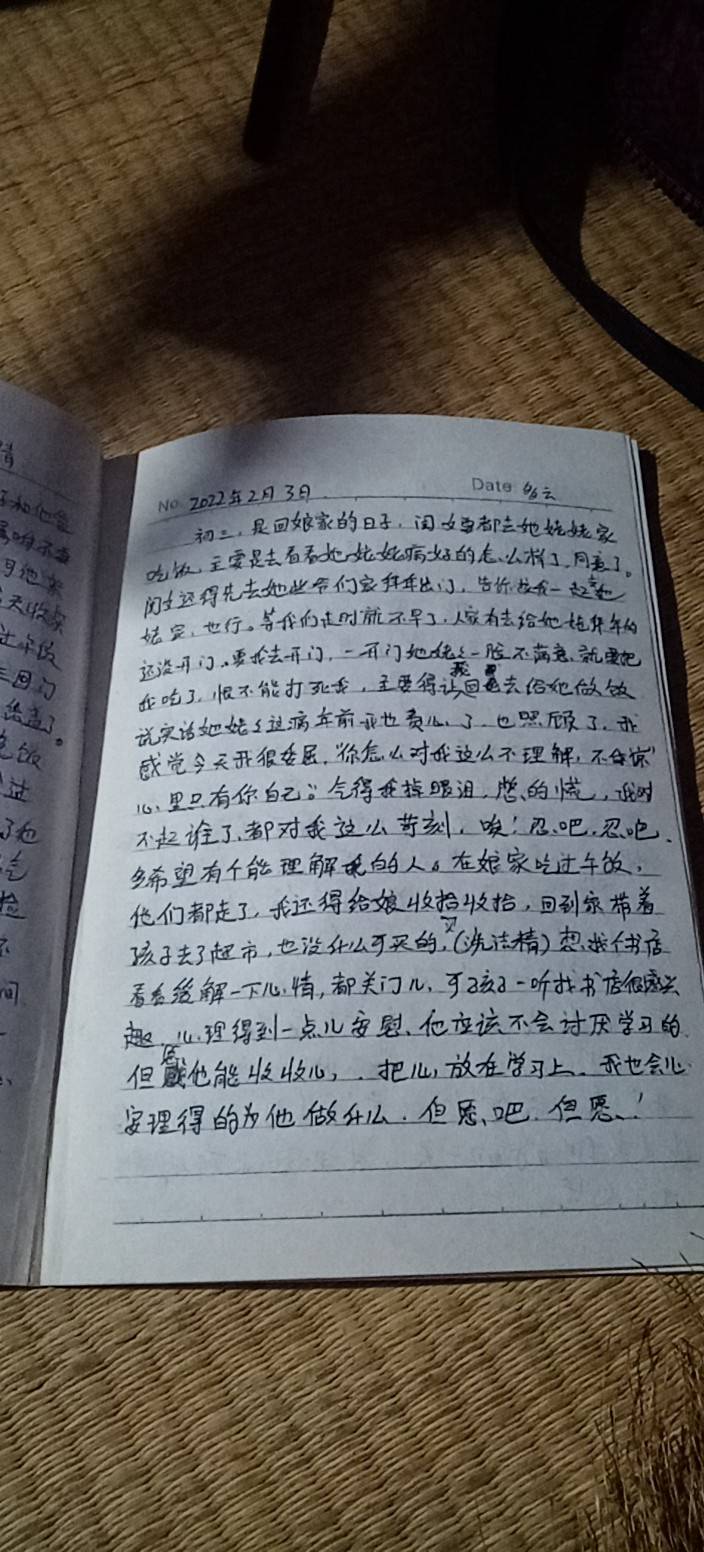 No. 2022年2月3日 Date 多云
初三,是回娘家的日子,闺女要都去她姥姥家
吃饭,主要是去看看她姥姥病好的怎么样了,同意了。
闺女还得先去她些爷们家拜年出门,告你爸我一起去她
姥家,也行。等我们走时就不早了,人家有去给她姥拜年的
还没开门,要我去开门,一开门她姥姥一脸不满意,就要把
我吃了,恨不能打死我,主要得让我回去给她做饭
说实话她姥姥这病年前我也费心了,也照顾了,我
感觉今天我很委屈,“你怎么对我这么不理解,不体谅”
心里只有你自己”气得我掉眼泪,憋的慌,我对
不起谁了,都对我这么苛刻,唉!忍吧,忍吧,
多希望有个能理解我的人。在娘家吃过午饭,
他们都走了,我还得给娘收拾收拾,回到家带着
孩子去了超市,也没什么可买的,(洗洁精)又想找个书店
看看缓解一下心情,都关门儿,可孩子一听找书店很感兴
趣,心理得到一点儿安慰,他应该不会讨厌学习的
但愿他能收收心,把心放在学习上,我也会心
安理得的为他做什么,但愿吧,但愿!
情
午饭
吃饭